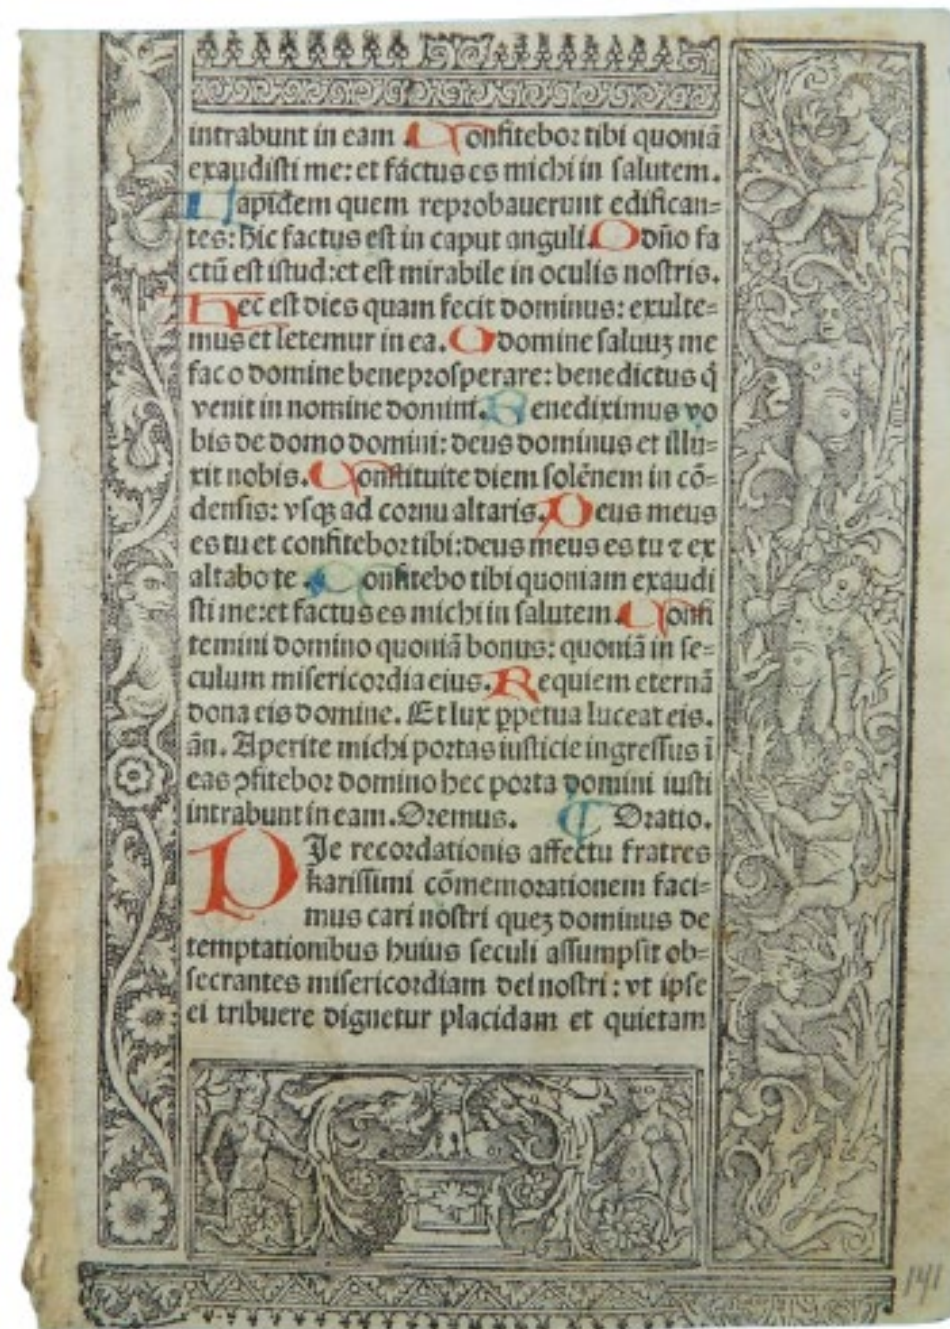 intrabunt in eam. Confitebor tibi quoniã
exaudisti me: et factus es michi in salutem.
Lapidem quem reprobauerunt edifican=
tes: hic factus est in caput anguli. A dño fa
ctũ est istud: et est mirabile in oculis nostris.
Hec est dies quam fecit dominus: exulte=
mus et letemur in ea. O domine saluuz me
fac o domine beneprosperare: benedictus q̃
venit in nomine domini. Benediximus vo
bis de domo domini: deus dominus et illu=
xit nobis. Constituite diem solẽnem in cõ=
densis: vsqz ad cornu altaris. Deus meus
es tu et confitebor tibi: deus meus es tu ⁊ ex
altabo te. Confitebo tibi quoniam exaudi
sti me: et factus es michi in salutem. Confi
temini domino quoniã bonus: quoniã in se=
culum misericordia eius. Requiem eternã
dona eis domine. Et lux ꝑpetua luceat eis.
ãn. Aperite michi portas iusticie ingressus ĩ
eas ꝯfitebor domino hec porta domini iusti
intrabunt in eam. Oremus. ¶ Oratio.
PIe recordationis affectu fratres
karissimi cõmemorationem faci=
mus cari nostri quez dominus de
temptationibus huius seculi assumpsit ob=
secrantes misericordiam dei nostri: vt ipse
ei tribuere dignetur placidam et quietam
141